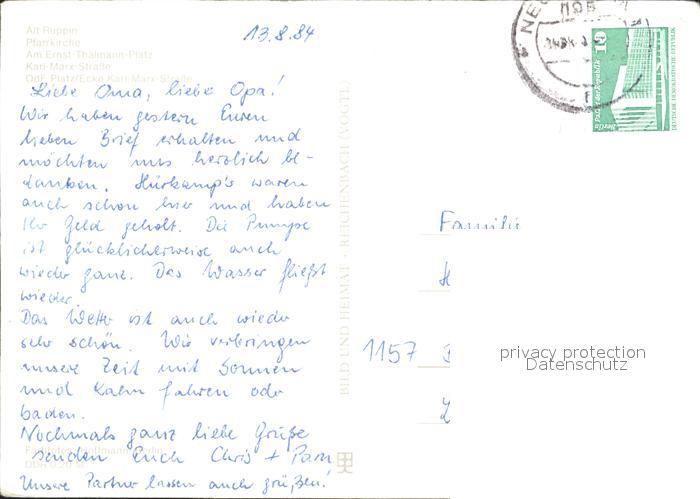 Alt Ruppin
Pfarrkirche
Am Ernst-Thälmann-Platz
Karl-Marx-Straße
OdF Platz/Ecke Karl-Marx-Straße
13.8.84
Liebe Oma, liebe Opa!
Wir haben gestern Euren
lieben Brief erhalten und
möchten uns herzlich be-
danken. Hürkamp's waren
auch schon hier und haben
Ihr Geld geholt. Die Pumpe
ist glücklicherweise auch
wieder ganz. Das Wasser fließt
wieder.
Das Wetter ist auch wieder
sehr schön. Wir verbringen
unsere Zeit mit Sonnen
und Kahn fahren oder
baden.
Nochmals ganz liebe Grüße
senden Euch Chris +
Unsere Partner lassen auch grüßen!
BILD UND HEIMAT · REICHENBACH (VOGTL)
Familie
H
1157
privacy protection
Datenschutz
10
Palast der Republik
Berlin
DEUTSCHE DEMOKRATISCHE REPUBLIK